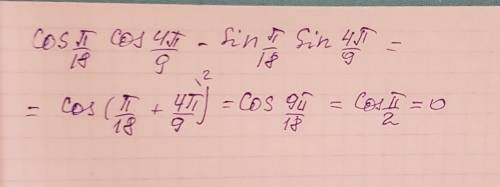 cos π/18 cos 4π/9 - sin π/18 sin 4π/9 =
= cos (π/18 + 4π/9\2) = cos 9π/18 = cos π/2 = 0